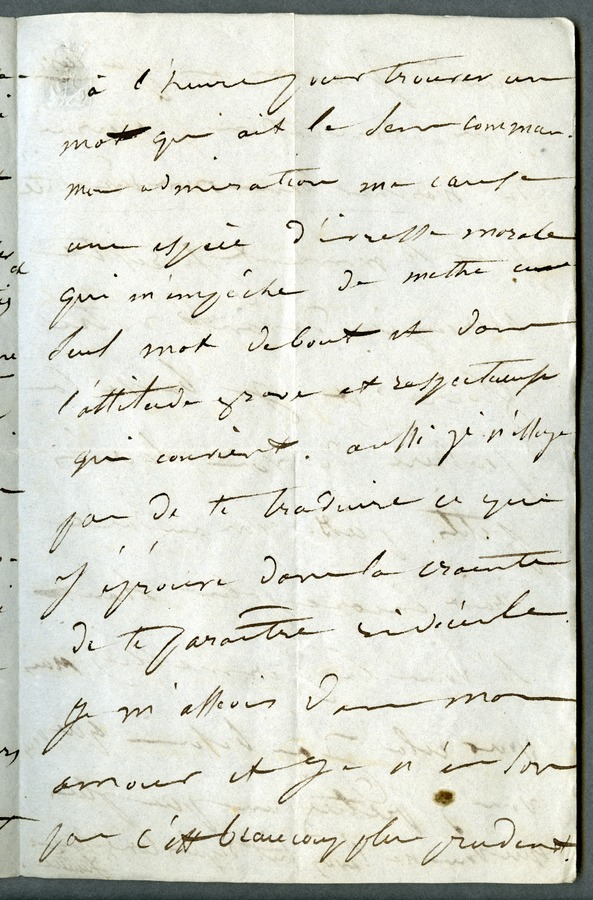 à l'heure pour trouver un
mot qui ait le sens commun.
mon admiration me cause
une espèce d'ivresse morale
qui m'empêche de mettre un
seul mot debout et dans
l'attitude grave et respectueuse
qui convient. aussi je n'essaye
pas de te traduire ce que
j'éprouve dans la crainte
de te paraître ridicule.
je m'assois dans mon
amour et je n'en sors
pas c'est beaucoup plus prudent.